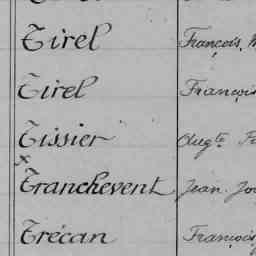 Tirel François
Tirel François
Tissier Augte
Tranchevent Jean
Trécan François